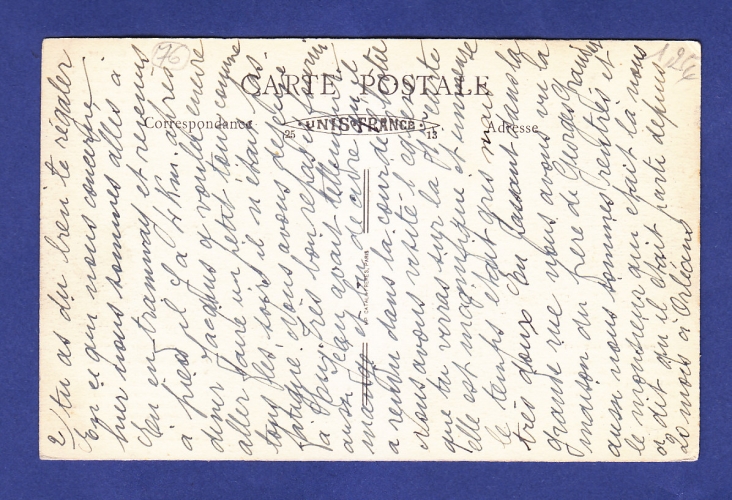 76
1286
CARTE POSTALE
Correspondance
UNIS FRANCE
25
15
Adresse
2/ tu as du bien te régaler
En ce qui nous concerne
hier nous sommes allés à
en tramway et revenus
à pied il y a 4 Km. après
diner Jacques a voulu encore
aller faire un tour comme
tous les soirs il n'était pas
fatigué. Nous avons déjeuné
à très bon repas
aussi avait tellement
mangé
a rendu dans la cour de
Nous avons visité l'
que tu verras sur la
Elle est magnifique et immense
le temps était gris mais
très doux En passant dans la
grande rue nous avons vu la
maison du père de Georges
aussi nous sommes rentrés et
le monsieur qui était là nous
a dit qu'il était parti depuis
20 mois à Orléans